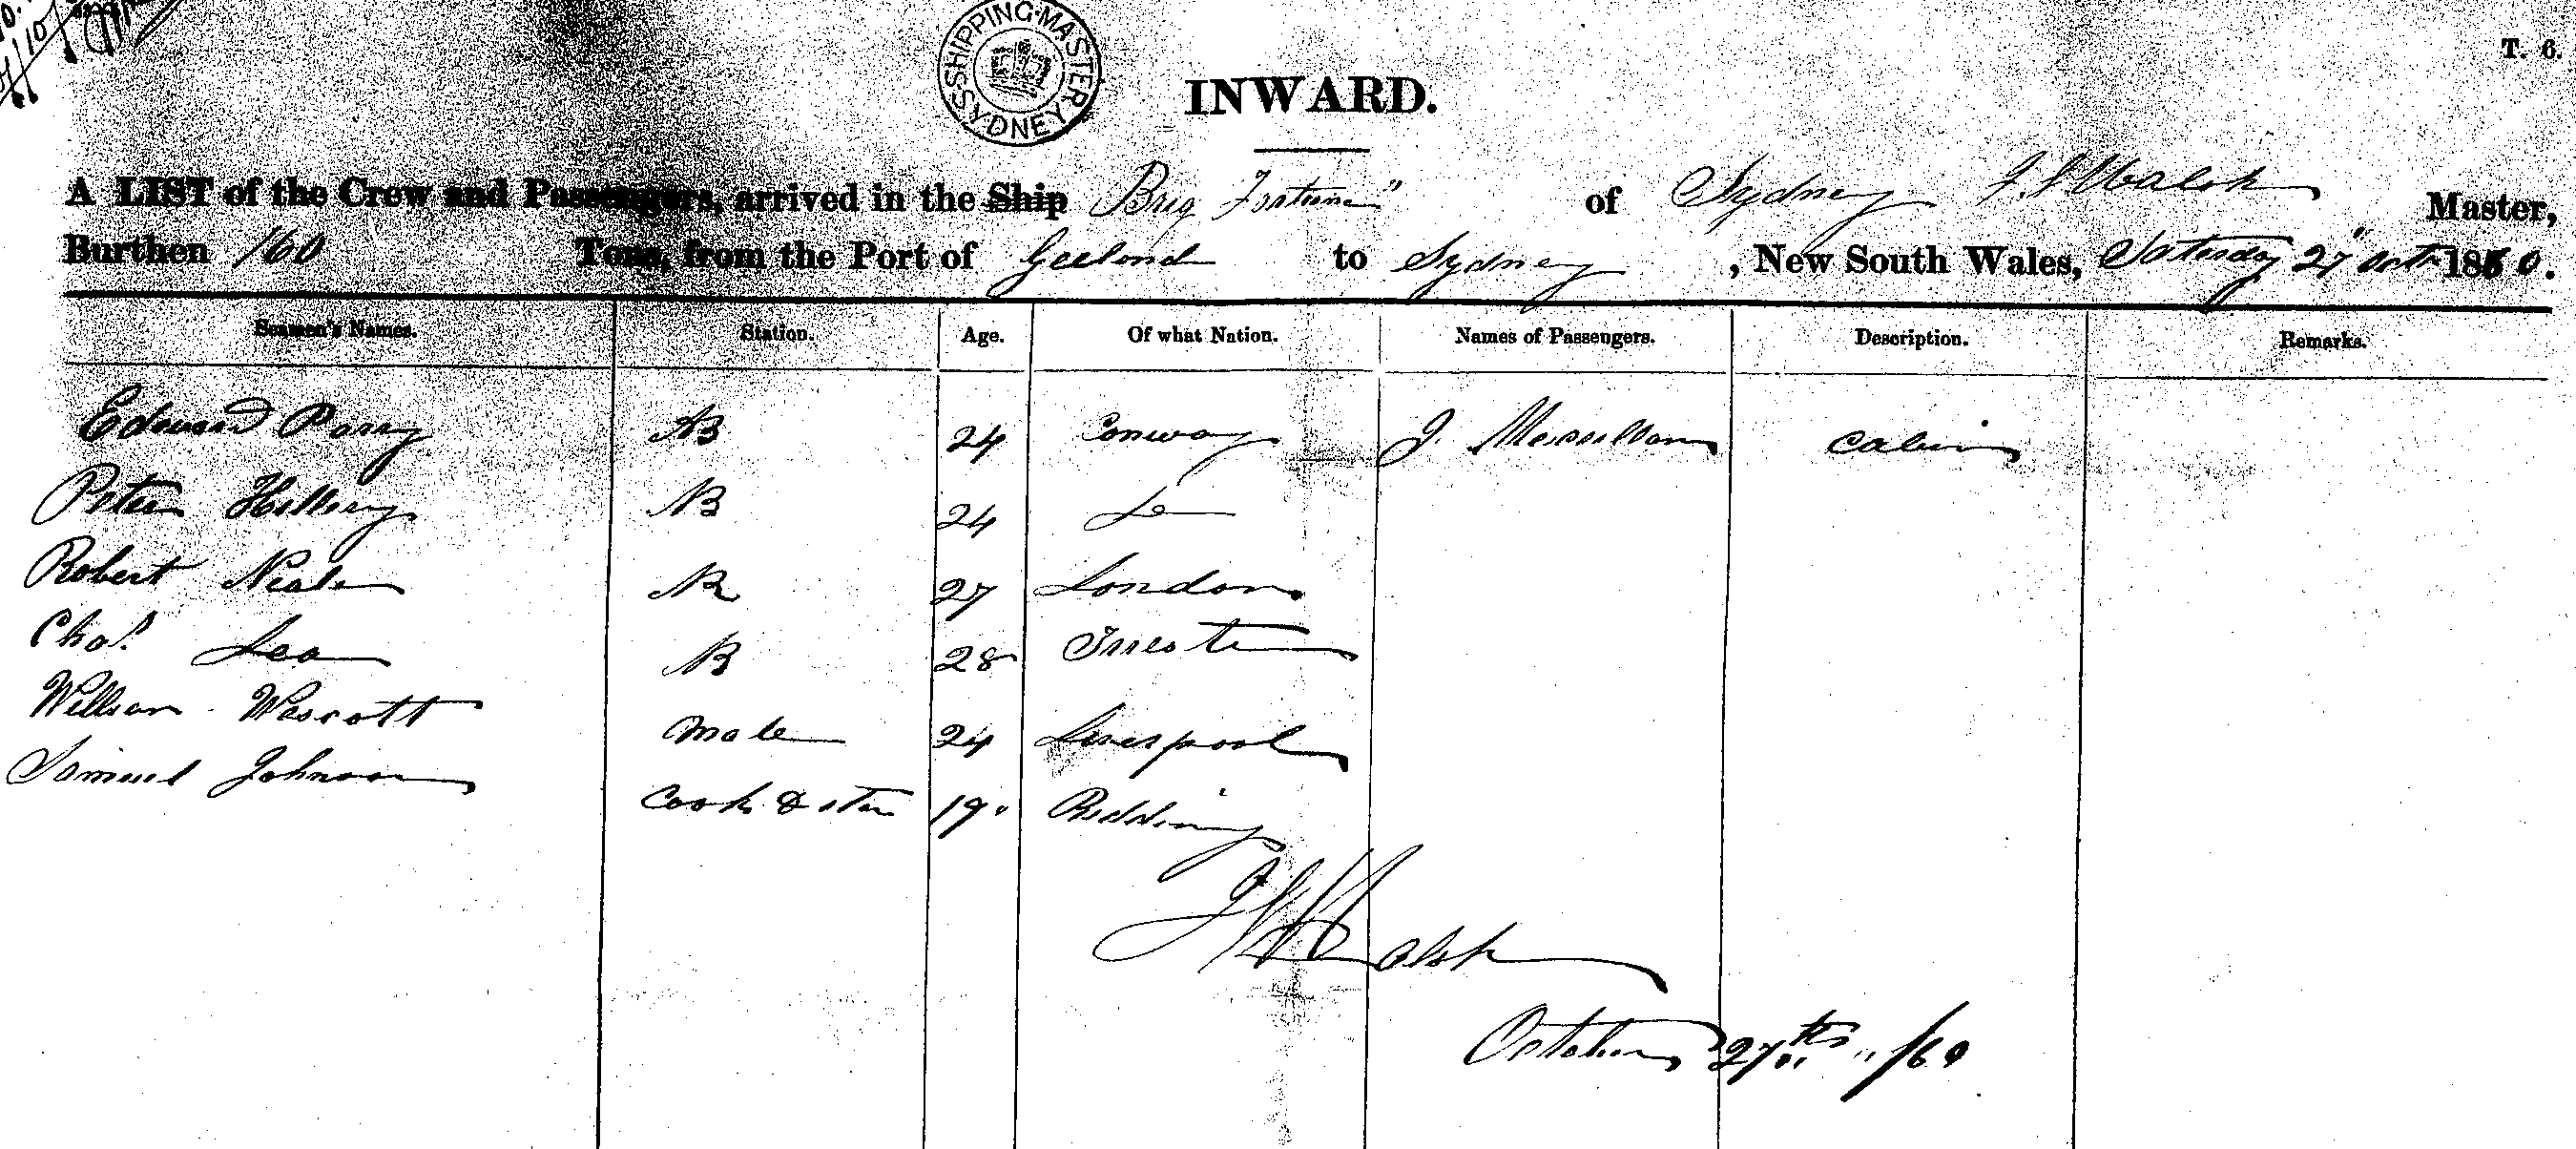 SHIPPING·MASTER SYDNEY
T. 6.
INWARD.
A LIST of the Crew and Passengers, arrived in the Ship Brig Fortune" of Sydney J. S Walsh Master,
Burthen 160 Tons, from the Port of Geelond to Sydney, New South Wales, Saturday 27" Octr 1860.
Seamen's Names. Station. Age. Of what Nation. Names of Passengers. Description. Remarks.
Edward Parry AB 24 Conway J. cabin
Peter Hillery AB 24 Do
Robert Neale AB 27 London
Chas. Leo AB 28 Trieste
William Wescott Mate 24 Liverpool
Samuel Johnson Cook & Stew 19 Redding
J S Walsh
October 27th /60